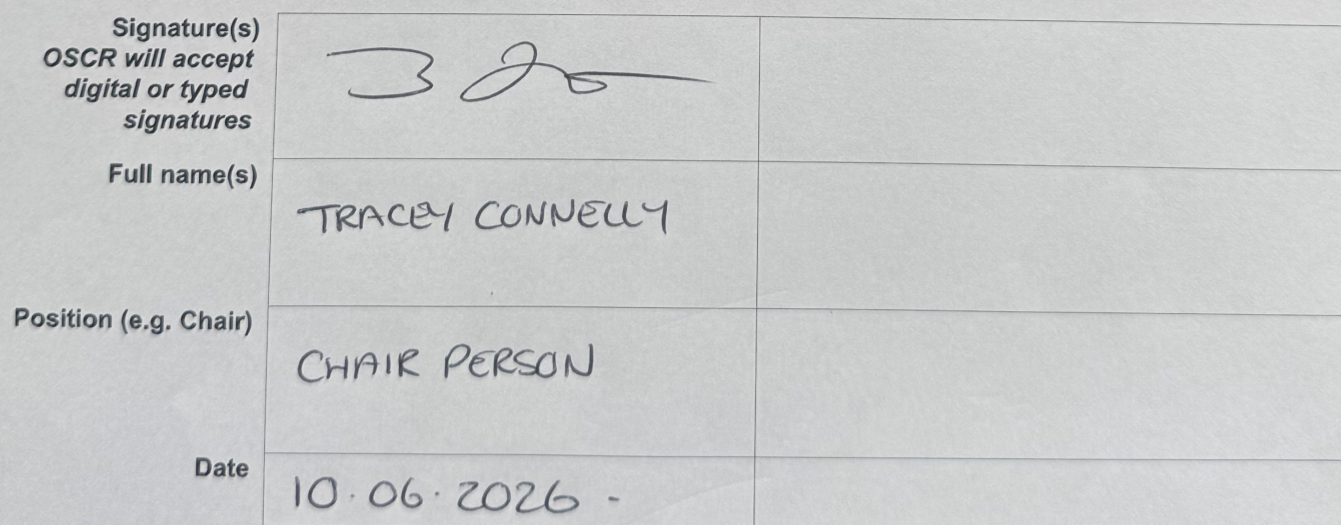 Signature(s)
OSCR will accept
digital or typed
signatures
Full name(s)
TRACEY CONNELLY
Position (e.g. Chair)
CHAIR PERSON
Date
10.06.2026 -